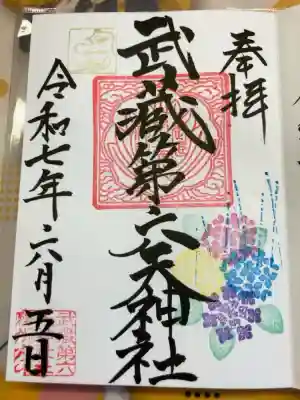 奉拝
武蔵第六天神社
令和七年六月五日